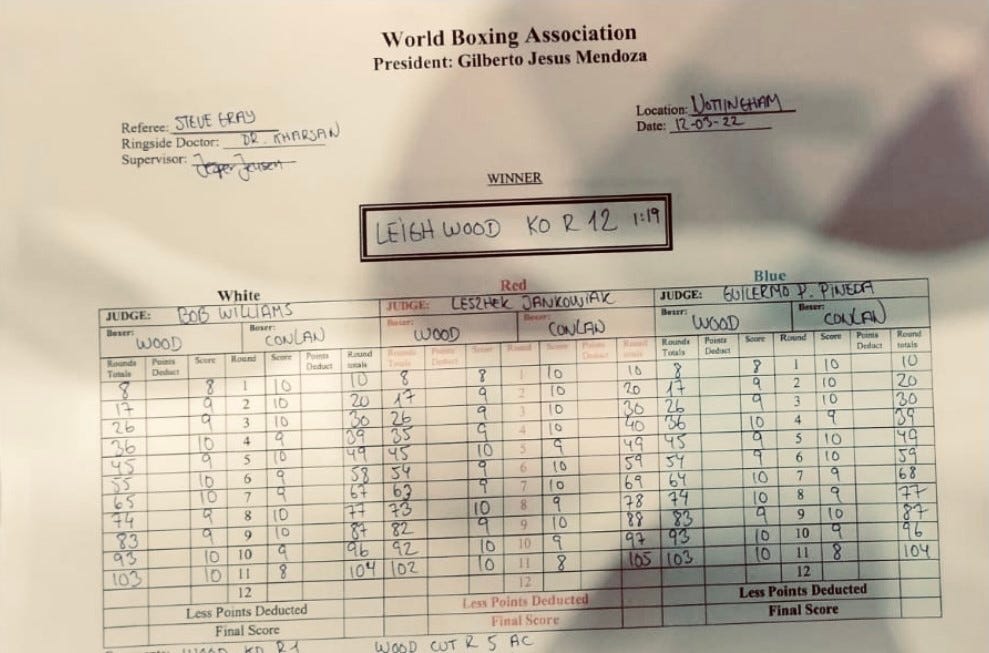 World Boxing Association
President: Gilberto Jesus Mendoza
Referee: STEVE GRAY
Ringside Doctor: DR. KHARSAN
Supervisor: Jesper Jensen
Location: NOTTINGHAM
Date: 12-03-22
WINNER
LEIGH WOOD KO R 12 1:19
White Red Blue
JUDGE: BOB WILLIAMS JUDGE: LESZHEK JANKOWIAK JUDGE: GUILERMO P. PINEDA
Boxer: WOOD Boxer: CONLAN Boxer: WOOD Boxer: CONLAN Boxer: WOOD Boxer: CONLAN
Rounds Totals Points Deduct Score Round Score Points Deduct Round totals Rounds Totals Points Deduct Score Round Score Points Deduct Round totals Rounds Totals Points Deduct Score Round Score Points Deduct Round totals
8 8 1 10 10 8 8 1 10 10 8 8 1 10 10
17 9 2 10 20 17 9 2 10 20 17 9 2 10 20
26 9 3 10 30 26 9 3 10 30 26 9 3 10 30
36 10 4 9 39 35 9 4 10 40 36 10 4 9 39
45 9 5 10 49 45 10 5 9 49 45 9 5 10 49
55 10 6 9 58 54 9 6 10 59 54 9 6 10 59
65 10 7 9 67 63 9 7 10 69 64 10 7 9 68
74 9 8 10 77 73 10 8 9 78 74 10 8 9 77
83 9 9 10 87 82 9 9 10 88 83 9 9 10 87
93 10 10 9 96 92 10 10 9 97 93 10 10 9 96
103 10 11 8 104 102 10 11 8 105 103 10 11 8 104
12 12 12
Less Points Deducted Less Points Deducted Less Points Deducted
Final Score Final Score Final Score
WOOD KD R1 WOOD CUT R 5 AC